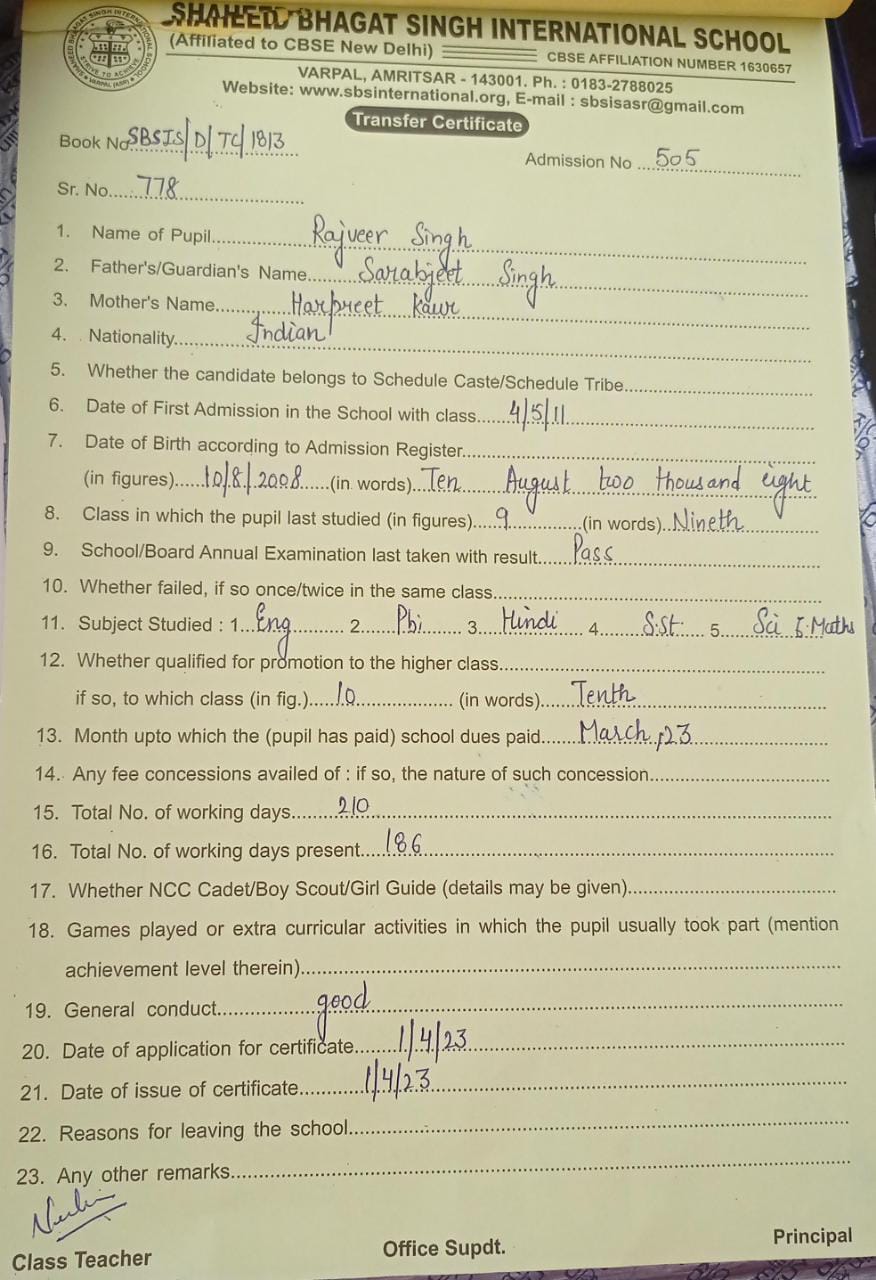 SHAHEED BHAGAT SINGH INTERNATIONAL SCHOOL
(Affiliated to CBSE New Delhi)
CBSE AFFILIATION NUMBER 1630657
VARPAL, AMRITSAR - 143001. Ph. : 0183-2788025
Website: www.sbsinternational.org, E-mail : sbsisasr@gmail.com
Transfer Certificate
Book No SBSIS/D/TC/1813
Admission No ...505
Sr. No.....778
1. Name of Pupil............Rajveer Singh
2. Father's/Guardian's Name......Sarabjeet Singh
3. Mother's Name............Harpreet Kaur
4. Nationality............Indian
5. Whether the candidate belongs to Schedule Caste/Schedule Tribe............
6. Date of First Admission in the School with class.....4/5/11
7. Date of Birth according to Admission Register............
(in figures).....10/8/2008.....(in words)..Ten August two thousand eight
8. Class in which the pupil last studied (in figures)....9............(in words)..Nineth
9. School/Board Annual Examination last taken with result.....Pass
10. Whether failed, if so once/twice in the same class............
11. Subject Studied : 1...Eng.......... 2......Pbi....... 3....Hindi.... 4.......S.St.... 5.....Sci & Maths
12. Whether qualified for promotion to the higher class............
if so, to which class (in fig.).....10................... (in words)......Tenth
13. Month upto which the (pupil has paid) school dues paid......March,23
14. Any fee concessions availed of : if so, the nature of such concession............
15. Total No. of working days........210
16. Total No. of working days present....186
17. Whether NCC Cadet/Boy Scout/Girl Guide (details may be given)............
18. Games played or extra curricular activities in which the pupil usually took part (mention
achievement level therein)............
19. General conduct............good
20. Date of application for certificate.......1/4/23
21. Date of issue of certificate............1/4/23
22. Reasons for leaving the school............
23. Any other remarks............
Class Teacher
Office Supdt.
Principal